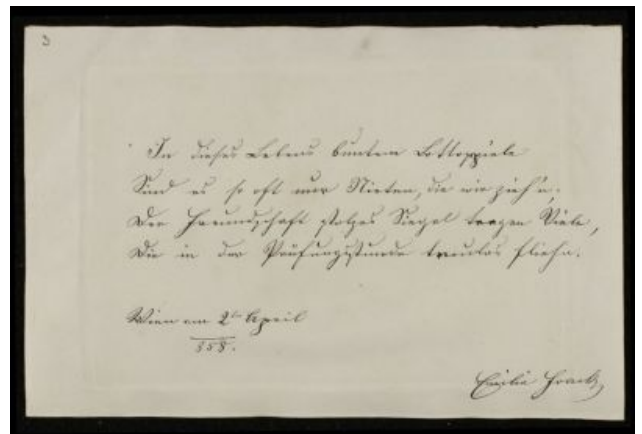 3
In dieses Lebens buntem Lottospiele
Sind es so oft nur Nieten, die wir zieh'n;
Der Freundschaft stolzes Siegel tragen Viele,
Die in der Prüfungsstunde treulos flieh'n.
Wien am 2ten April
858.
Emilie